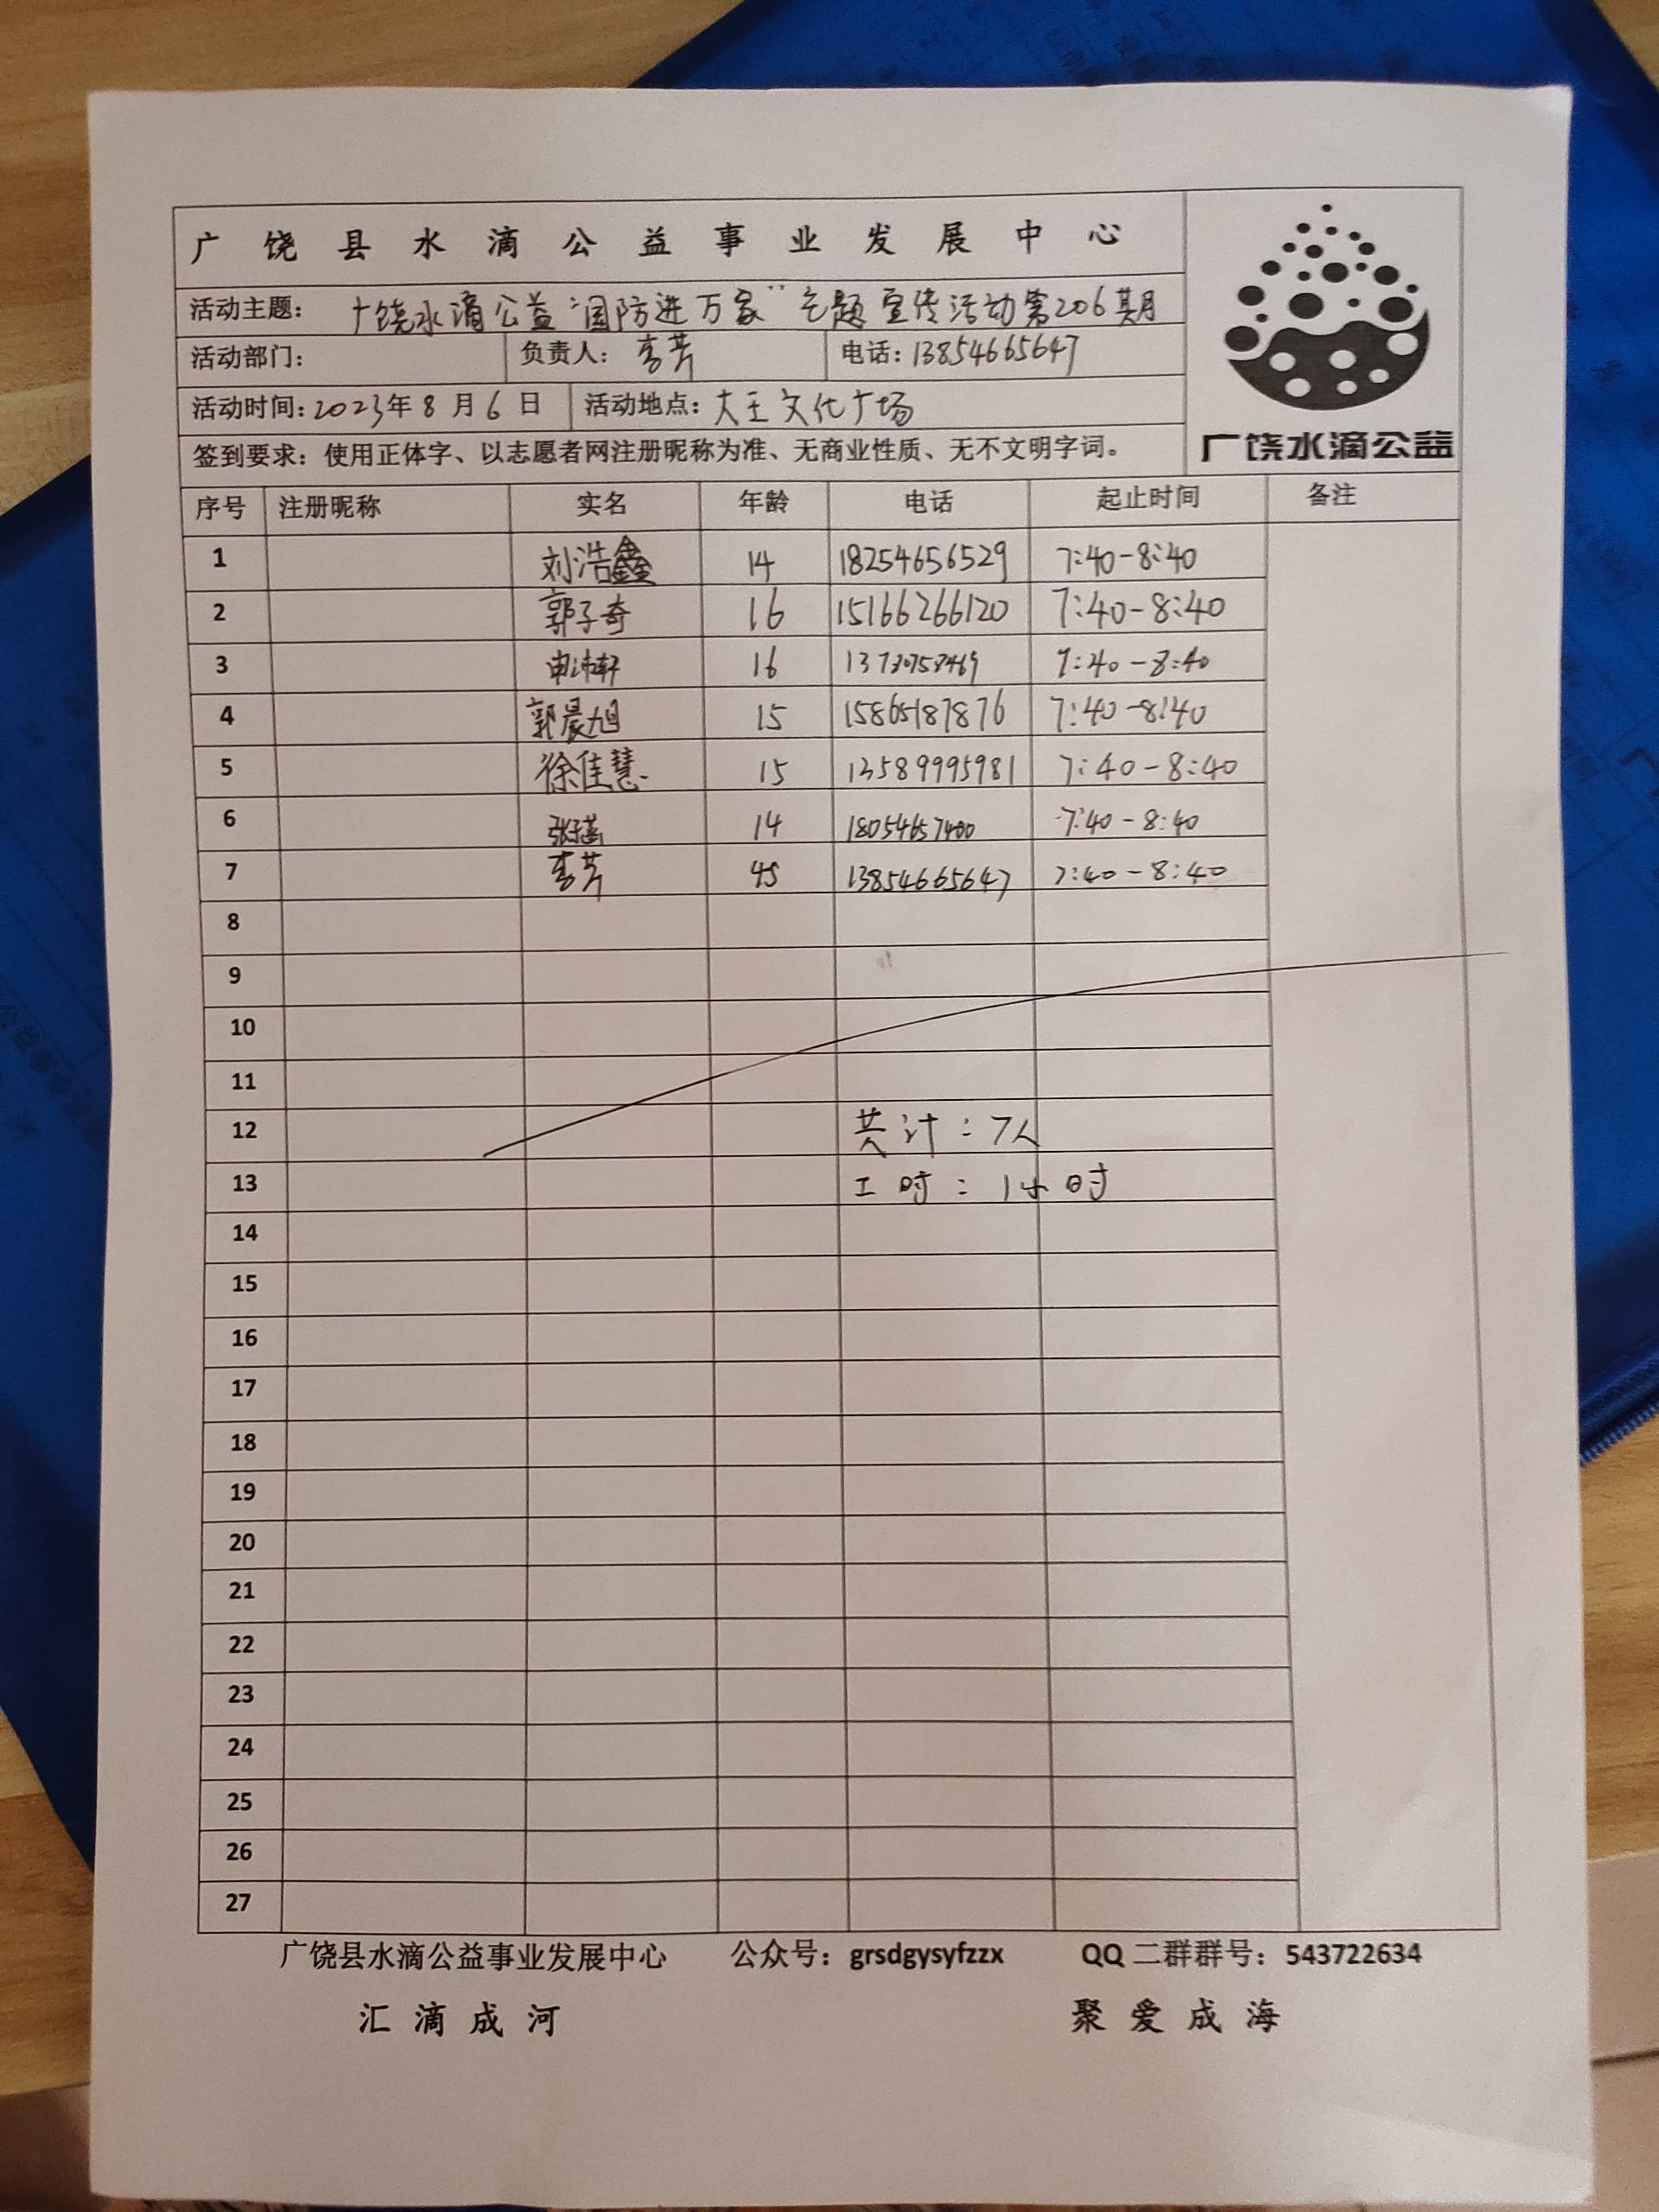 广饶县水滴公益事业发展中心
活动主题： 广饶水滴公益“国防进万家”主题宣传活动第206期
活动部门： 负责人：李芳 电话：13854665647
活动时间：2023年8月6日 活动地点：大王文化广场
签到要求：使用正体字、以志愿者网注册昵称为准、无商业性质、无不文明字词。
广饶水滴公益
序号 注册昵称 实名 年龄 电话 起止时间 备注
1 刘浩鑫 14 18254656529 7:40-8:40
2 郭子奇 16 15166266120 7:40-8:40
3 16 7:40-8:40
4 郭晨旭 15 15865187876 7:40-8:40
5 徐佳慧 15 13589995981 7:40-8:40
6 14 18054657400 7:40-8:40
7 李芳 45 13854665647 7:40-8:40
8
9
10
11
12 共计：7人
13 工时：1小时
14
15
16
17
18
19
20
21
22
23
24
25
26
27
广饶县水滴公益事业发展中心 公众号：grsdgysyfzzx QQ二群群号：543722634
汇滴成河 聚爱成海